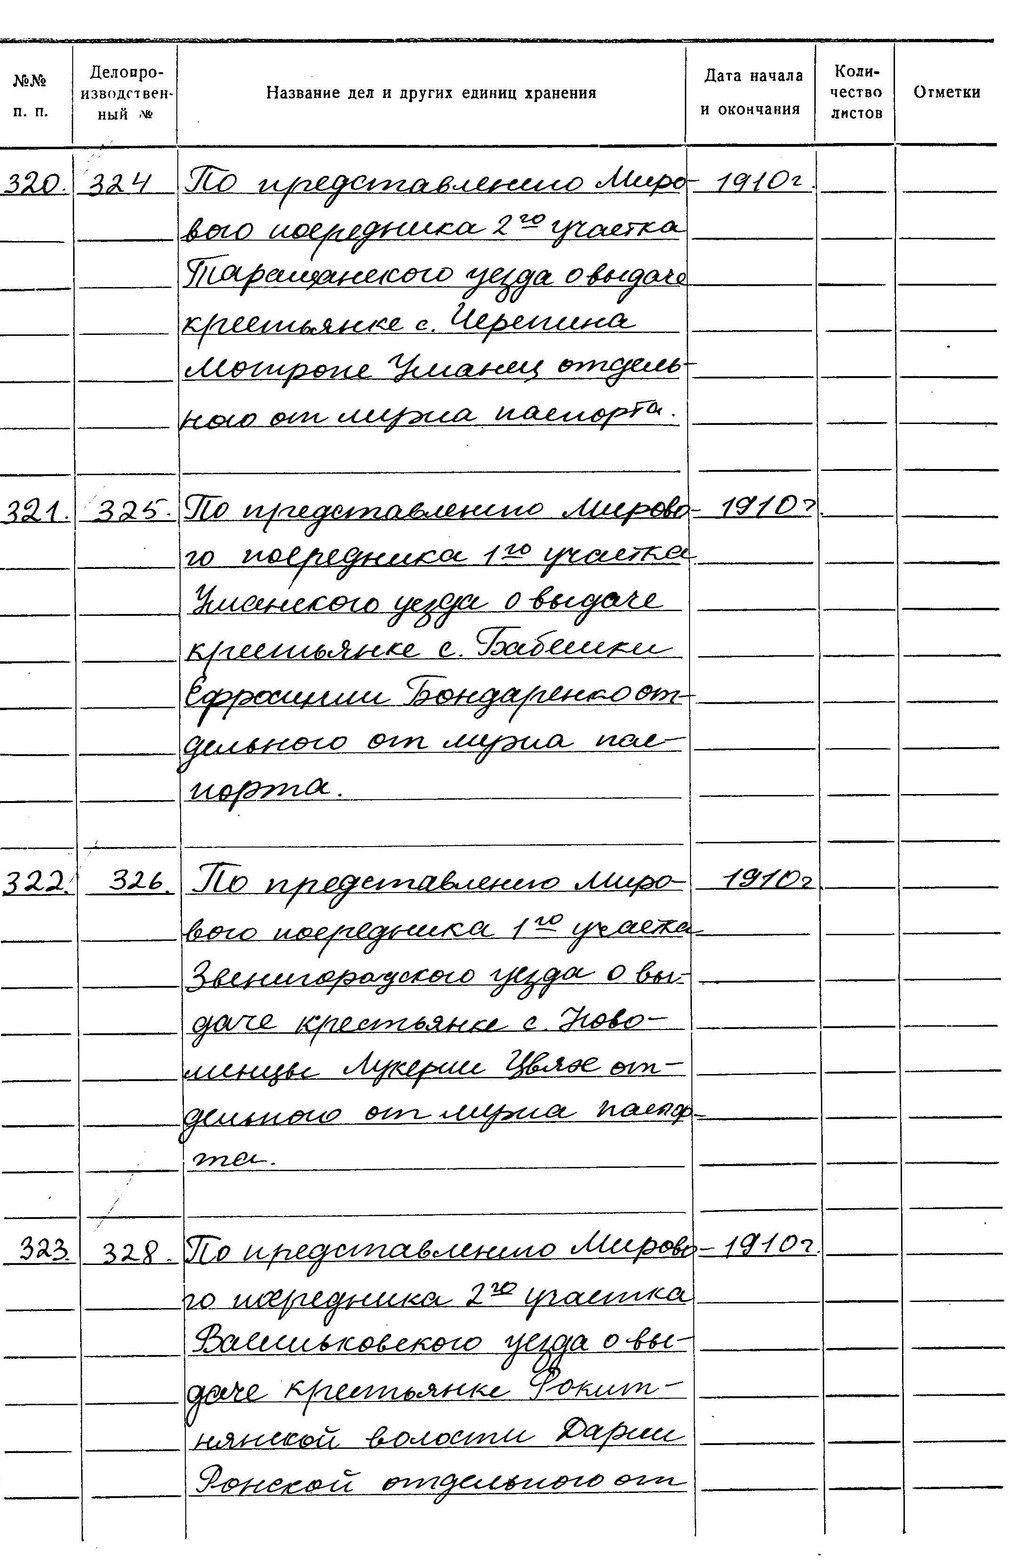 №№ п. п. Делопроизводственный № Название дел и других единиц хранения Дата начала и окончания Количество листов Отметки
320. 324 По представлению Миро- 1910г.
вого посредника 2го участка
Таращанского уезда о выдаче
крестьянке с. Черепина
Мотроне Уманец отдель-
ного от мужа паспорта.
321. 325. По представлению Мирово- 1910г.
го посредника 1го участка
Уманского уезда о выдаче
крестьянке с. Бабешки
Ефросинии Бондаренко от-
дельного от мужа пас-
порта.
322. 326. По представлению Миро- 1910г
вого посредника 1го участка
Звенигородского уезда о вы-
даче крестьянке с. Ново-
Лукерии Цвях от-
дельного от мужа паспор-
та.
323. 328. По представлению Мирово- 1910г.
го посредника 2го участка
Васильковского уезда о вы-
даче крестьянке Рокит-
нянской волости Дарии
Ронской отдельного от